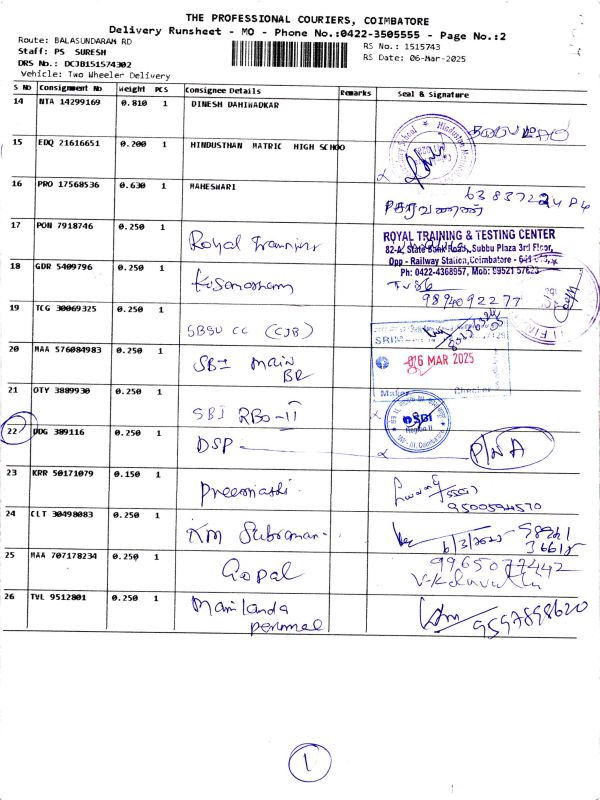 THE PROFESSIONAL COURIERS, COIMBATORE
Delivery Runsheet - MO - Phone No.:0422-3505555 - Page No.:2
Route: BALASUNDARAM RD
Staff: PS SURESH
DRS No.: DCJB151574302
Vehicle: Two Wheeler Delivery
RS No.: 1515743
RS Date: 06-Mar-2025
S No Consignment No Weight PCS Consignee Details Remarks Seal & Signature
14 NTA 14299169 0.810 1 DINESH DAHIWADKAR
15 EDQ 21616651 0.200 1 HINDUSTHAN MATRIC HIGH SCHOO
16 PRO 17568536 0.630 1 MAHESWARI
17 PON 7918746 0.250 1 Royal Training
ROYAL TRAINING & TESTING CENTER
82-A, State Bank Road, Subbu Plaza 3rd Floor,
Opp - Railway Station, Coimbatore - 641 018,
Ph: 0422-4368957, Mob: 99521 57623
18 GDR 5409796 0.250 1
9894092277
19 TCG 30069325 0.250 1 SBSU CC (CJB)
20 MAA 576084983 0.250 1 SBI main BR
06 MAR 2025
Maker Checker
21 OTY 3889930 0.250 1 SBI RBO-II
SBI
Region II
22 DDG 389116 0.250 1 DSP P/NA
23 KRR 50171079 0.150 1
9500594570
24 CLT 30498083 0.250 1 KM Subraman
6/3/2025
25 MAA 707178234 0.250 1 Gopal
9965077442
26 TVL 9512801 0.250 1 Manikanda perumal
9597898620
1